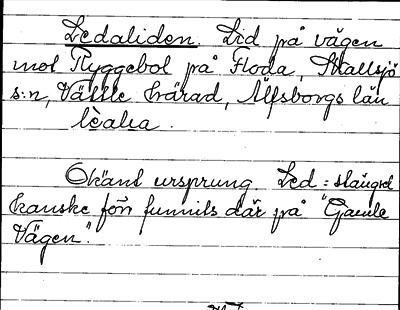 Ledaliden. Lid på vägen
mot Ryggebol på Floda, Skallsjö
s:n, Vättle härad, Älfsborgs län
Okänt ursprung. Led = stängsel
kanske förr funnits där på "Gamle
Vägen".